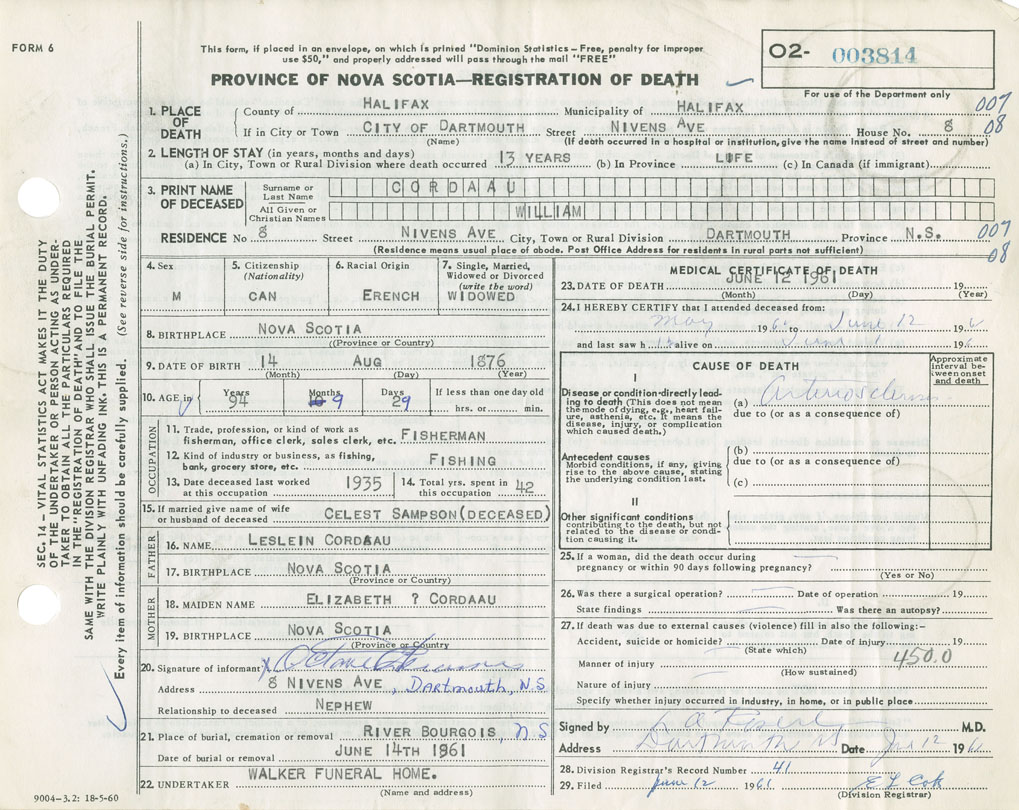 FORM 6
This form, if placed in an envelope, on which is printed "Dominion Statistics – Free, penalty for improper
use $50," and properly addressed will pass through the mail "FREE"
PROVINCE OF NOVA SCOTIA—REGISTRATION OF DEATH
O2- 003814
For use of the Department only
1. PLACE OF DEATH
County of HALIFAX Municipality of HALIFAX 007
If in City or Town CITY OF DARTMOUTH Street NIVENS AVE House No. 8 08
(Name) (If death occurred in a hospital or institution, give the name instead of street and number)
2. LENGTH OF STAY (in years, months and days)
(a) In City, Town or Rural Division where death occurred 13 YEARS (b) In Province LIFE (c) In Canada (if immigrant)
3. PRINT NAME OF DECEASED
Surname or Last Name CORDAAU
All Given or Christian Names WILLIAM
RESIDENCE No 8 Street NIVENS AVE City, Town or Rural Division DARTMOUTH Province N.S. 007
(Residence means usual place of abode. Post Office Address for residents in rural parts not sufficient) 08
4. Sex M
5. Citizenship (Nationality) CAN
6. Racial Origin ERENCH
7. Single, Married, Widowed or Divorced (write the word) WIDOWED
8. BIRTHPLACE NOVA SCOTIA
((Province or Country)
9. DATE OF BIRTH 14 AUG 1876
(Month) (Day) (Year)
10. AGE in Years 94 Months 9 Days 29 If less than one day old hrs. or min.
OCCUPATION
11. Trade, profession, or kind of work as fisherman, office clerk, sales clerk, etc. FISHERMAN
12. Kind of industry or business, as fishing, bank, grocery store, etc. FISHING
13. Date deceased last worked at this occupation 1935
14. Total yrs. spent in this occupation 42
15. If married give name of wife or husband of deceased CELEST SAMPSON (DECEASED)
FATHER
16. NAME LESLEIN CORDAAU
17. BIRTHPLACE NOVA SCOTIA
(Province or Country)
MOTHER
18. MAIDEN NAME ELIZABETH ? CORDAAU
19. BIRTHPLACE NOVA SCOTIA
(Province or Country)
20. Signature of informant X
Address 8 NIVENS AVE, Dartmouth, N.S
Relationship to deceased NEPHEW
21. Place of burial, cremation or removal RIVER BOURGOIS, NS
Date of burial or removal JUNE 14TH 1961
22. UNDERTAKER WALKER FUNERAL HOME.
(Name and address)
MEDICAL CERTIFICATE OF DEATH
23. DATE OF DEATH JUNE 12 1961 19
(Month) (Day) (Year)
24. I HEREBY CERTIFY that I attended deceased from:
May 1961 to June 12 196
and last saw h alive on June 196
CAUSE OF DEATH
Approximate interval between onset and death
I
Disease or condition directly leading to death (This does not mean the mode of dying, e.g., heart failure, asthenia, etc. It means the disease, injury, or complication which caused death.)
(a) Arteriosclerosis
due to (or as a consequence of)
Antecedent causes
Morbid conditions, if any, giving rise to the above cause, stating the underlying condition last.
(b)
due to (or as a consequence of)
(c)
II
Other significant conditions contributing to the death, but not related to the disease or condition causing it.
25. If a woman, did the death occur during
pregnancy or within 90 days following pregnancy?
(Yes or No)
26. Was there a surgical operation? Date of operation 19
State findings Was there an autopsy?
27. If death was due to external causes (violence) fill in also the following:–
Accident, suicide or homicide? Date of injury 19
(State which)
Manner of injury 450.0
(How sustained)
Nature of injury
Specify whether injury occurred in industry, in home, or in public place
Signed by M.D.
Address Dartmouth Date June 12 196
28. Division Registrar's Record Number 41
29. Filed June 12 1961
(Division Registrar)
SEC. 14 – VITAL STATISTICS ACT MAKES IT THE DUTY
OF THE UNDERTAKER OR PERSON ACTING AS UNDER-
TAKER TO OBTAIN ALL THE PARTICULARS REQUIRED
IN THE "REGISTRATION OF DEATH" AND TO FILE THE
SAME WITH THE DIVISION REGISTRAR WHO SHALL ISSUE THE BURIAL PERMIT.
WRITE PLAINLY WITH UNFADING INK. THIS IS A PERMANENT RECORD.
Every item of information should be carefully supplied. (See reverse side for instructions.)
9004-3.2: 18-5-60